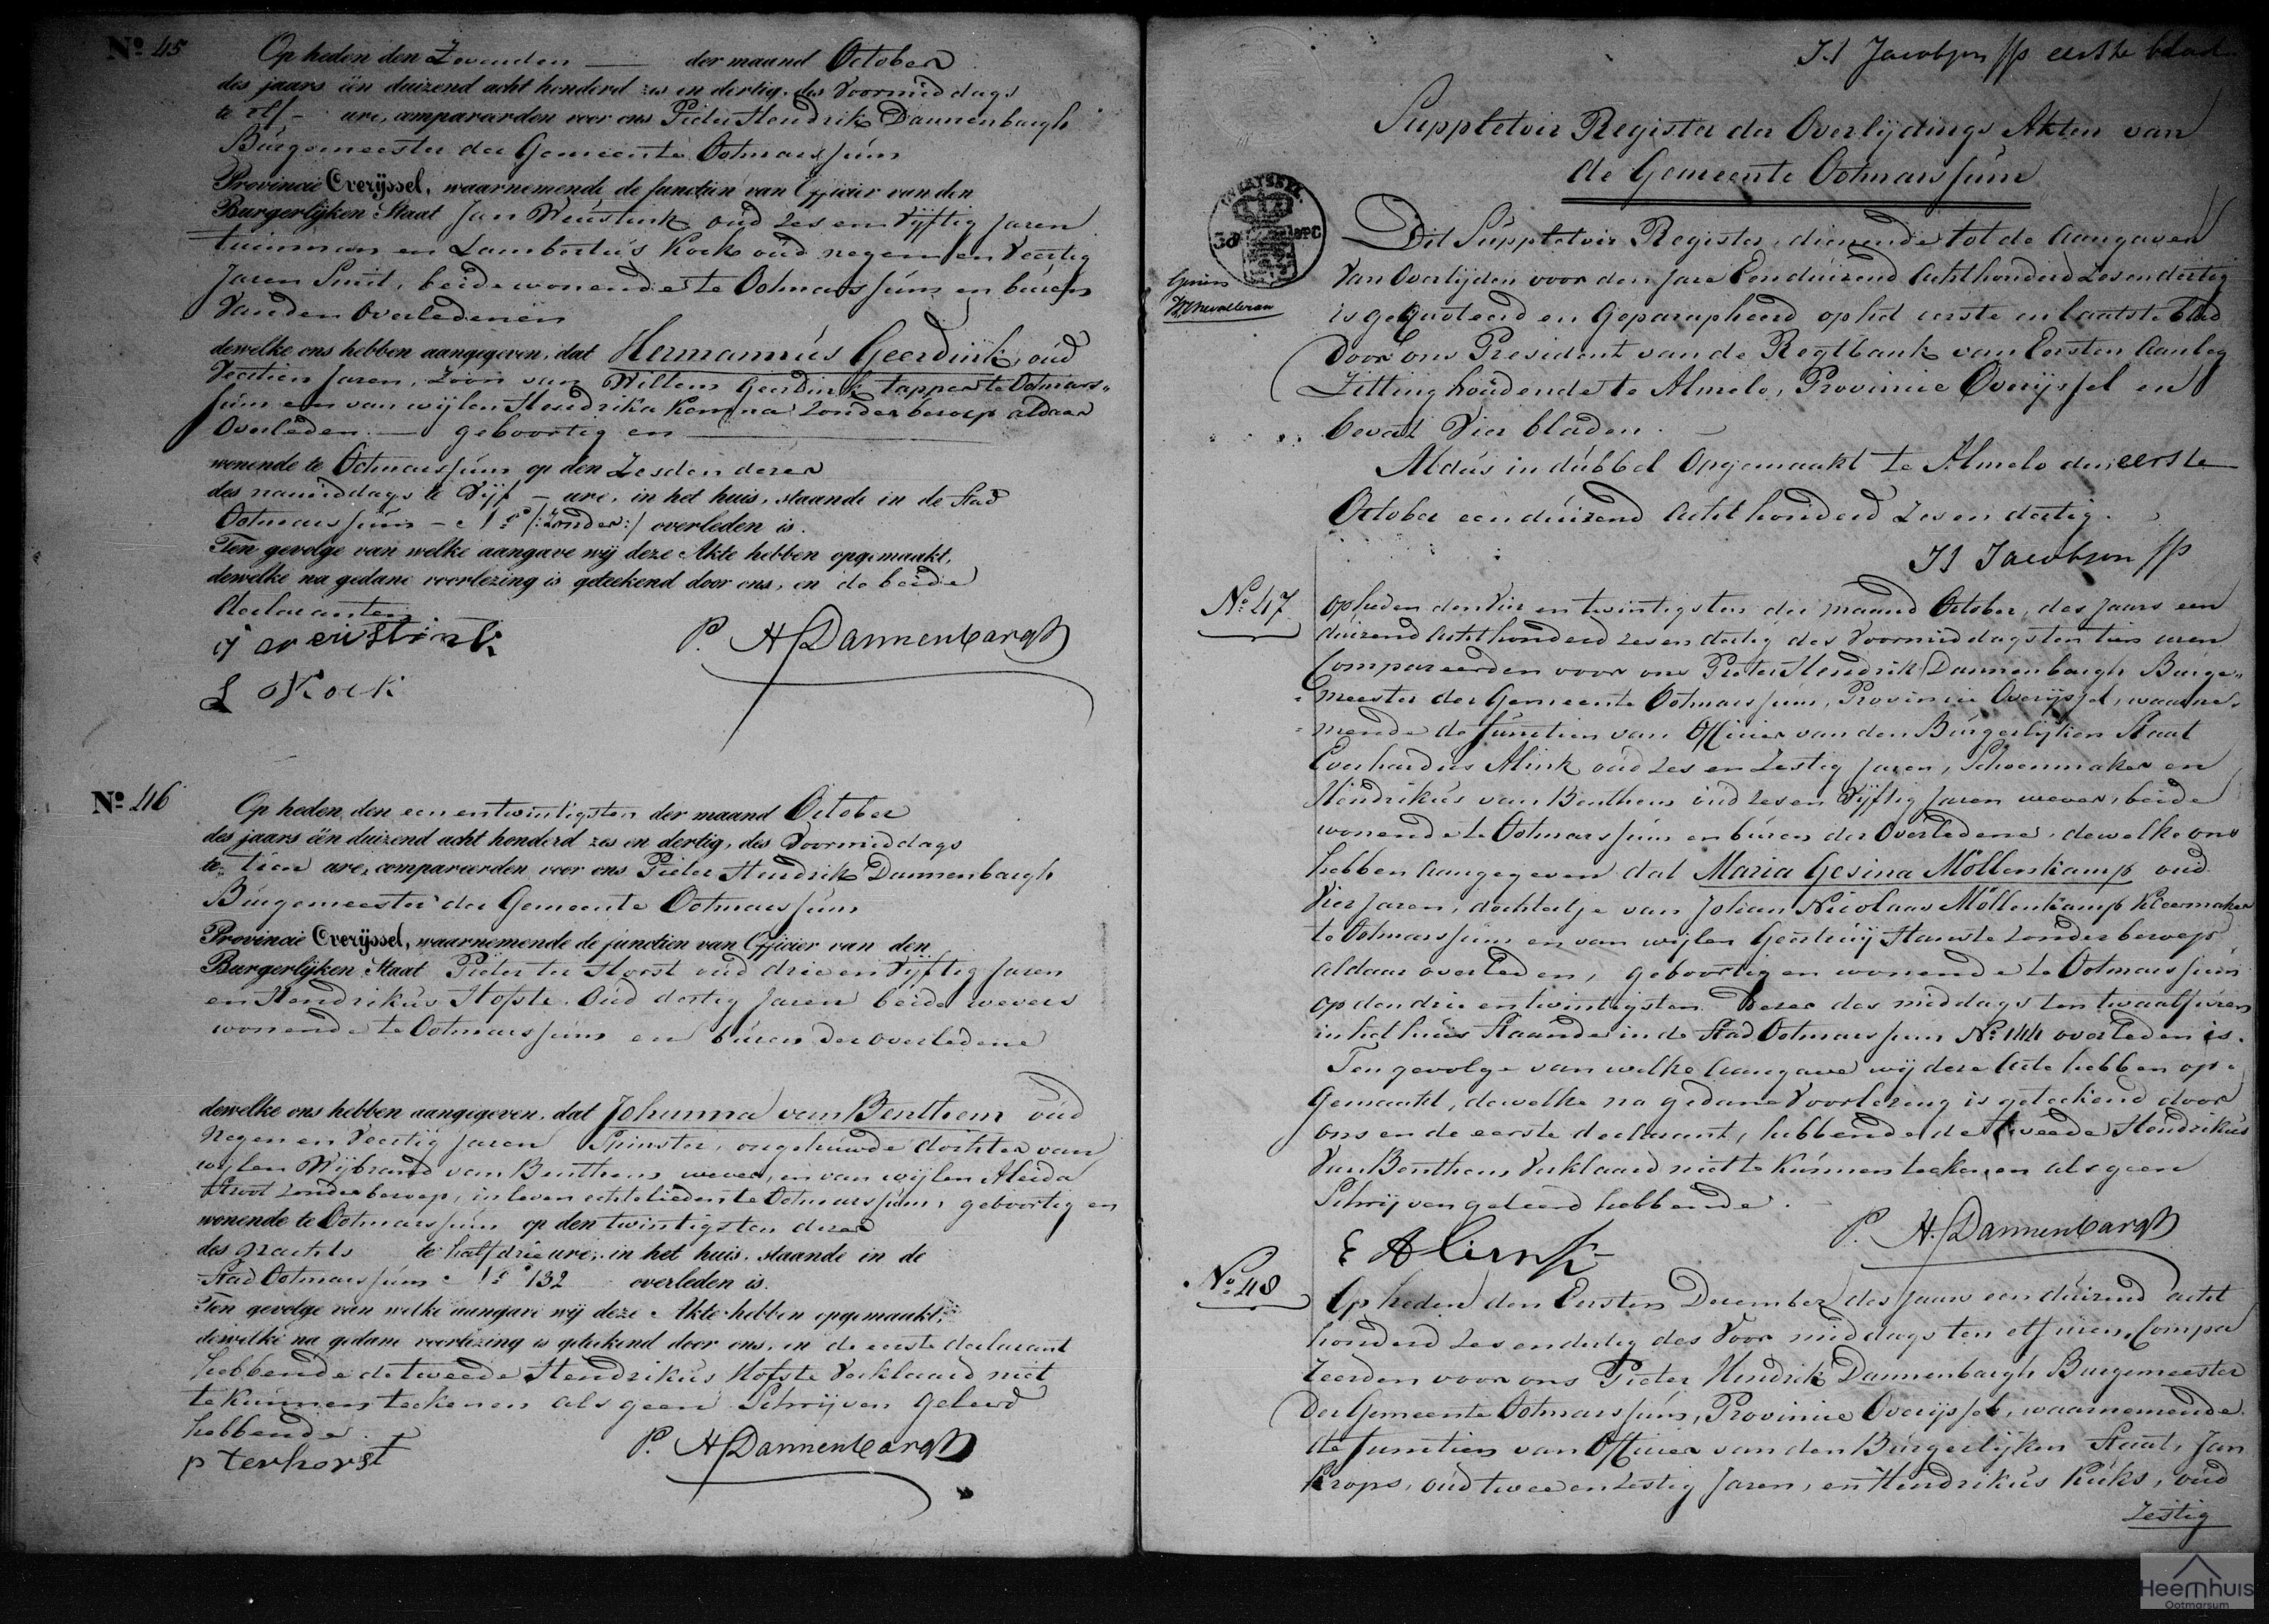 No 45
Op heden den Zevenden der maand October
des jaars één duizend acht honderd zes en dertig, des Voormiddags
te elf ure, compareerden voor ons Pieter Hendrik Dannenbargh
Burgemeester der Gemeente Ootmarssum
Provincie Overijssel, waarnemende de functien van Officier van den
Burgerlijken Staat Jan Weustink oud zes en Vijftig Jaren
tuinman en Lambertus Kock oud negen en Veertig
Jaren Smit, beide wonende te Ootmarssum en buren
Van den Overledenen
dewelke ons hebben aangegeven, dat Hermannus Geerdink, oud
Veertien Jaren, Zoon van Willem Geerdink tapper te Ootmars„
sum en van wijlen Hendrika zonder beroep aldaar
Overleden geboortig en
wonende te Ootmarssum op den Zesden dezer
des namiddags te Vijf ure, in het huis, staande in de Stad
Ootmarssum No /:zonder:/ overleden is.
Ten gevolge van welke aangave wij deze Akte hebben opgemaakt,
dewelke na gedane voorlezing is geteekend door ons, en de beide
declaranten
J weustink
P. H Dannenbargh
L Kock
No 46
Op heden den een en twintigsten der maand October
des jaars één duizend acht honderd zes en dertig, des Voormiddags
te tien ure, compareerden voor ons Pieter Hendrik Dannenbargh
Burgemeester der Gemeente Ootmarssum
Provincie Overijssel, waarnemende de functien van Officier van den
Burgerlijken Staat Pieter ter Horst oud drie en Vijftig Jaren
en Hendrikus Hofste Oud dertig Jaren beide wevers
wonende te Ootmarssum en buren der overledene
dewelke ons hebben aangegeven, dat Johanna van Benthem oud
Negen en Veertig Jaren Spinster, ongehuwde dochter van
wijlen Wijbrand van Benthem wever, en van wijlen Aleida
Stroot zonder beroep, in leven echtelieden te Ootmarssum, geboortig en
wonende te Ootmarssum op den twintigsten dezer
des nachts te half drie ure, in het huis, staande in de
Stad Ootmarssum No 132 overleden is.
Ten gevolge van welke aangave wij deze Akte hebben opgemaakt,
dewelke na gedane voorlezing is geteekend door ons, en de eerste declarant
hebbende de tweede Hendrikus Hofste Verklaard niet
te kunnen teekenen als geen Schrijven geleerd
hebbende.
p terhorst
P. H Dannenbargh
Jacobson eerste blad
Suppletoir Register der Overlijdings Akten van
de Gemeente Ootmarssum
Dit Suppletoir Register, dienende tot de Aangaven
Van Overlijden voor den Jare Een duizend Acht honderd Zes en dertig
is gequoteerd en Geparapheerd op het eerste en laatste blad
Door Ons President van de Regtbank van Eersten Aanleg
Zitting houdende te Almelo, Provincie Overijssel en
bevat Vier bladen.
Aldus in dubbel Opgemaakt te Almelo den eerste
October een duizend Acht honderd Zes en dertig.
Jacobson
No 47
Op heden den Vier en twintigsten der maand October, des Jaars een
duizend Acht honderd zes en dertig des Voormiddags ten tien uren
Compareerden voor ons Pieter Hendrik Dannenbargh Burge„
meester der Gemeente Ootmarssum, Provincie Overijssel, waarne„
mende de functien van Officier van den Burgerlijken Staat
Everhardus Alink oud zes en Zestig Jaren, Schoenmaker en
Hendrikus van Benthem oud zes en Vijftig Jaren wever, beide
wonende te Ootmarssum en buren der Overledene, dewelke ons
hebben Aangegeven dat Maria Gesina Möllenkamp oud
Vier Jaren, dochtertje van Johan Nicolaas Möllenkamp Kleermaker
te Ootmarssum en van wijlen zonder beroep
aldaar overleden, geboortig en wonende te Ootmarssum
op den drie en twintigsten dezer des middags ten twaalf uren
in het huis Staande in de Stad Ootmarssum No 144 overleden is.
Ten gevolge van welke Aangave wij deze Acte hebben op„
Gemaakt, dewelke na gedane Voorlezing is geteekend door
ons en de eerste declarant, hebbende de tweede Hendrikus
Van Benthem Verklaard niet te kunnen teekenen als geen
Schrijven geleerd hebbende.
E Alink
P. H. Dannenbargh
No 48
Op heden den Eersten December des Jaars een duizend acht
honderd Zes en dertig des Voor middags ten elf uren, Compa
reerden voor ons Pieter Hendrik Dannenbargh Burgemeester
Der Gemeente Ootmarssum, Provincie Overijssel, waarnemende
de functien van Officier van den Burgerlijken Staat, Jan
Krops, oud twee en zestig Jaren, en Hendrikus Kuks, oud
Zestig
Heemhuis
Ootmarsum